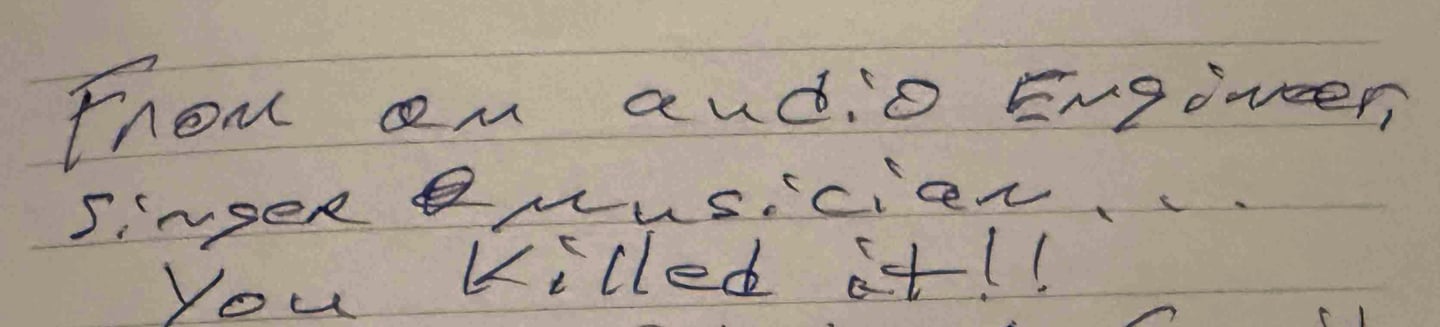 From an audio Engineer,
Singer & musician...
You Killed it!!